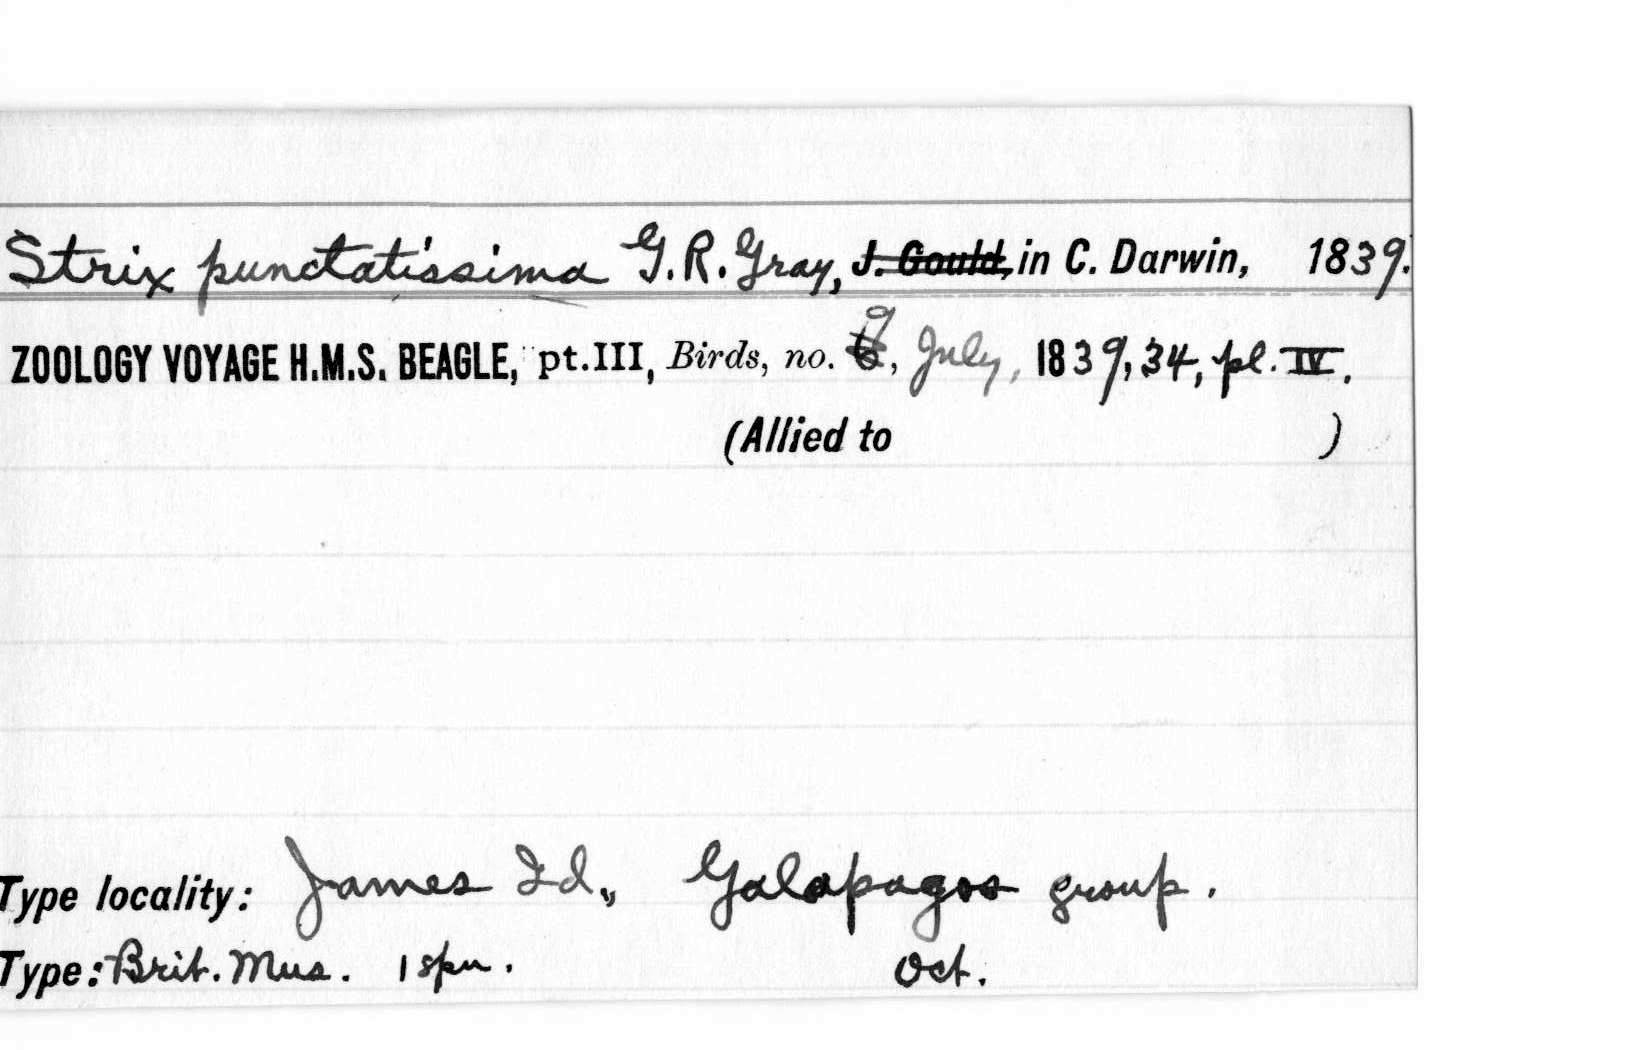 Strix punctatissima G.R. Gray, J. Gould, in C. Darwin, 1839.
ZOOLOGY VOYAGE H.M.S. BEAGLE, pt.III, Birds, no. 9, July, 1839, 34, pl. IV.
(Allied to )
Type locality: James Id., Galapagos group.
Type: Brit. Mus. 1 spm. Oct.